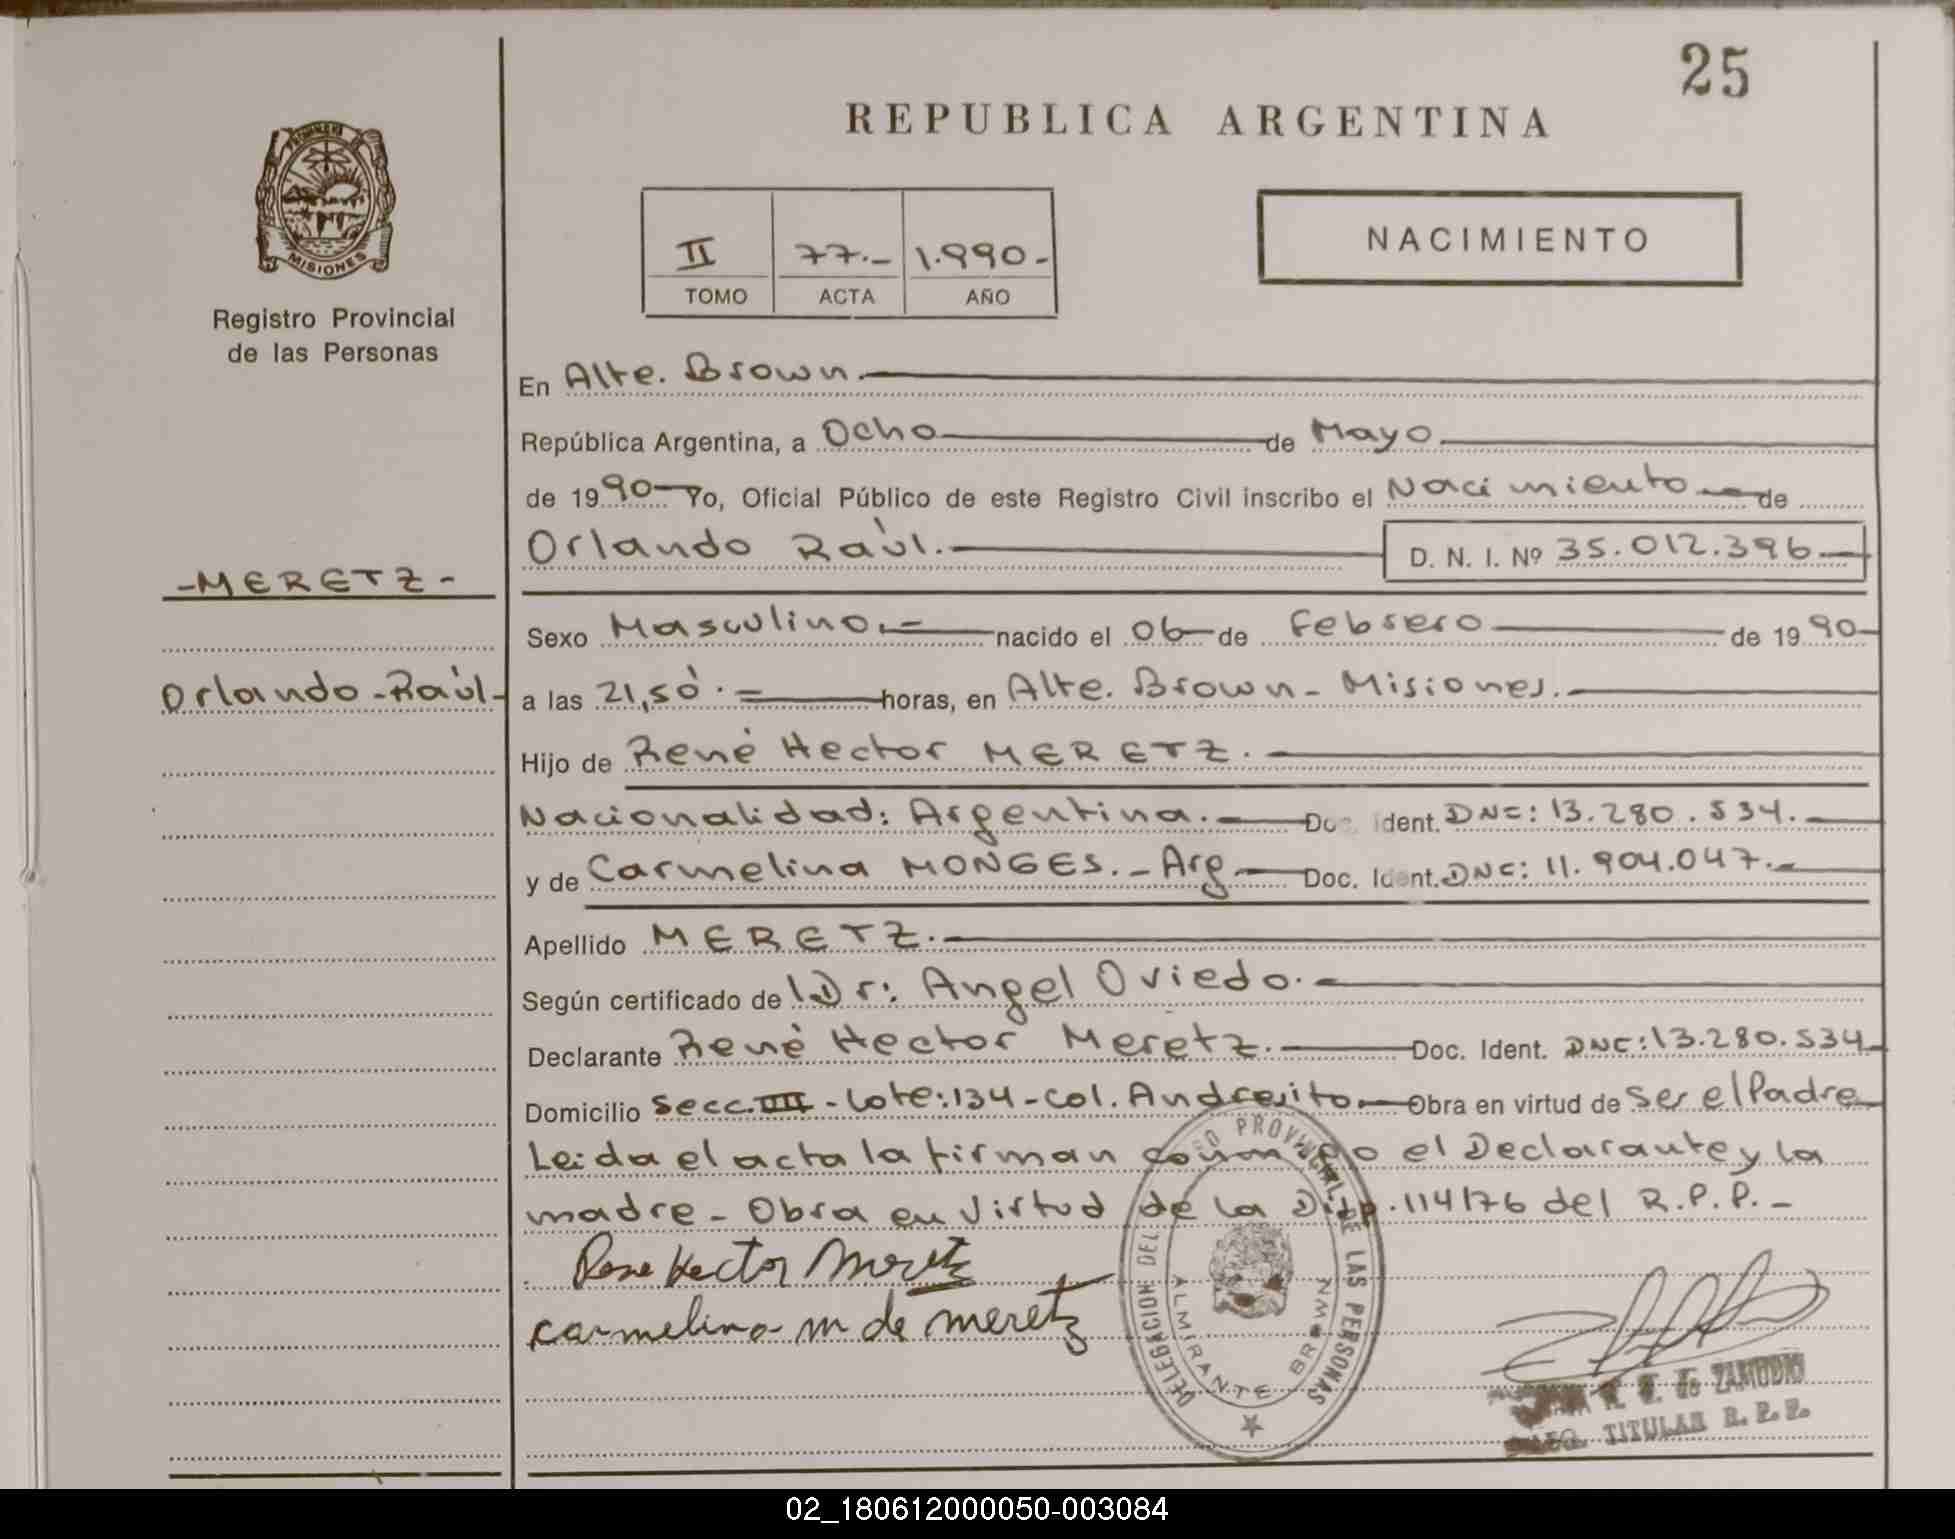 25
REPUBLICA ARGENTINA
II 77.- 1.990-
TOMO ACTA AÑO
NACIMIENTO
MISIONES
Registro Provincial
de las Personas
-MERETZ-
Orlando-Raúl-
En Alte. Brown.
República Argentina, a Ocho de Mayo
de 1990 Yo, Oficial Público de este Registro Civil inscribo el Nacimiento de
Orlando Raúl. D. N. I. Nº 35.012.396
Sexo Masculino.- nacido el 06 de Febrero de 1990
a las 21,50. horas, en Alte. Brown - Misiones.
Hijo de René Hector MERETZ.
Nacionalidad: Argentina. Doc. Ident. DNE: 13.280.534.
y de Carmelina MONGES.- Arg. Doc. Ident. DNE: 11.904.047.-
Apellido MERETZ.
Según certificado de Dr: Angel Oviedo.
Declarante René Hector Meretz. Doc. Ident. DNE: 13.280.534
Domicilio Secc. III - Lote: 134 - Col. Andresito. Obra en virtud de ser el Padre
Leida el acta la firman conmigo el Declarante y la
madre - Obra en Virtud de la Disp. 114/76 del R.P.P.-
Rene Hector Meretz
carmelina m de meretz
DELEGACION DEL REGISTRO PROVINCIAL DE LAS PERSONAS
ALMIRANTE BROWN
de ZAMUDIO
TITULAR R.P.P.
02_180612000050-003084